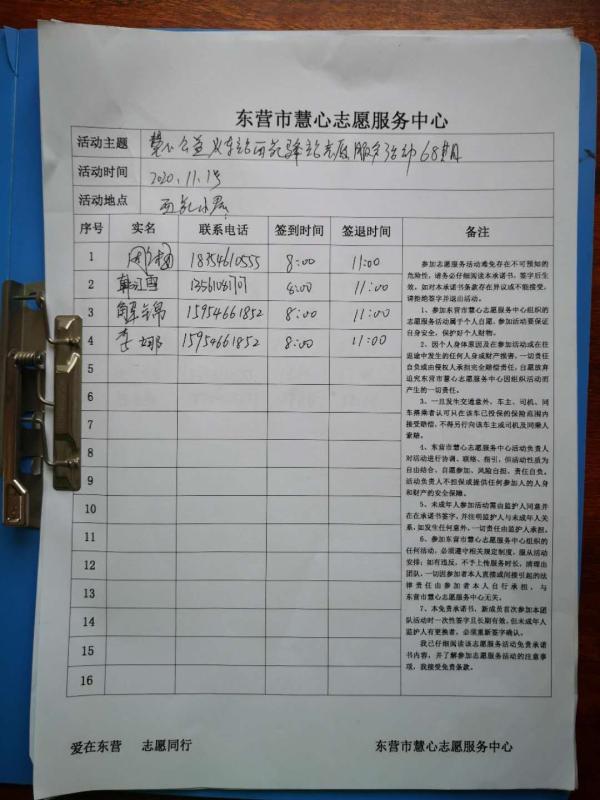 东营市慧心志愿服务中心
活动主题 慧心公益火车站西苑驿站志愿服务活动68期
活动时间 2020.11.1号
活动地点
序号 实名 联系电话 签到时间 签退时间 备注
1 18354610555 8:00 11:00
2 韩江雪 8:00 11:00
3 解锦 15954661852 8:00 11:00
4 李娜 15954661852 8:00 11:00
5
6
7
8
9
10
11
12
13
14
15
16
参加志愿服务活动难免存在不可预知的
危险性，请务必仔细阅读本承诺书，签字后生
效。如对本承诺书条款存在异议或不能接受，
请拒绝签字并退出活动。
1、参加东营市慧心志愿服务中心组织的
志愿服务活动属于个人自愿。参加活动要保证
自身安全，保护好个人财物。
2、因个人身体原因及在参加活动或在往
返途中发生的任何人身或财产损害，一切责任
自负或由侵权人承担完全赔偿责任，自愿放弃
追究东营市慧心志愿服务中心因组织活动而
产生的一切责任。
3、一旦发生交通意外，车主、司机、同
车搭乘者认可只在该车已投保的保险范围内
接受赔偿，不得另行向该车主或司机及同乘人
索赔。
4、东营市慧心志愿服务中心活动负责人
对活动进行协调、联络、指引，但活动性质为
自由结合、自愿参加、风险自担、责任自负。
活动负责人不担保或提供任何参加人的人身
和财产的安全保障。
5、未成年人参加活动需由监护人同意并
在在承诺书签字，并注明监护人与未成年人关
系，如发生任何意外，一切责任由监护人承担。
6、参加东营市慧心志愿服务中心组织的
任何活动，必须遵守相关规定制度，服从活动
安排；如有违反，不予上传服务时长，清理出
团队。一切因参加者本人直接或间接引起的法
律责任由参加者本人自行承担，与
东营市慧心志愿服务中心无关。
7、本免责承诺书，新成员首次参加本团
队活动时一次性签字且长期有效，但未成年人
监护人有更换者，必须重新签字确认。
我已仔细阅读该志愿服务活动免责承诺
书内容，并了解参加志愿服务活动的注意事
项，我接受免责条款。
爱在东营 志愿同行 东营市慧心志愿服务中心